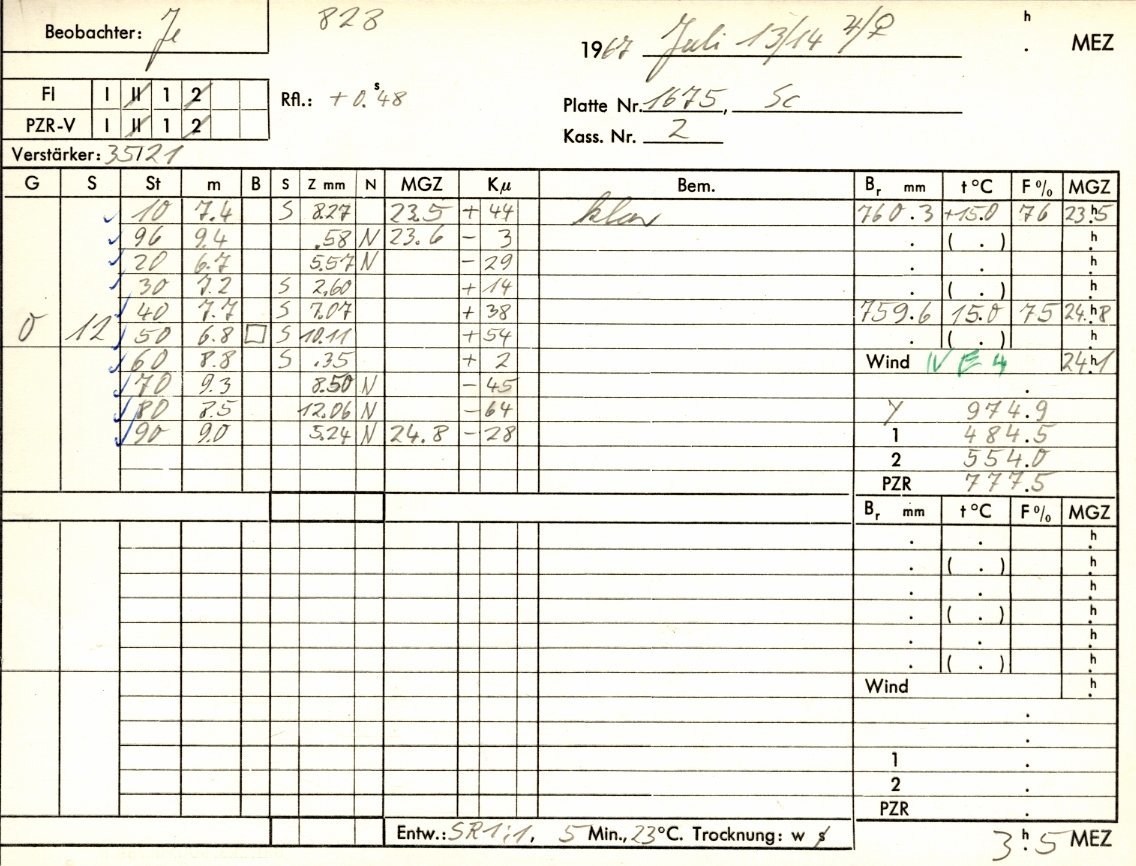 Beobachter: Je 823 1967 Juli 13/14 ♃/♀ h . MEZ
FI I II 1 2 Rfl.: +0.s48 Platte Nr. 1675, Sc
PZR-V I II 1 2 Kass. Nr. 2
Verstärker: 35/21
G S St m B S Z mm N MGZ Kμ Bem. Br mm t °C F % MGZ
10 7.4 S 8.27 23.5 + 44 klar 760.3 +15.0 76 23.h5
96 9.4 .58 N 23.6 - 3 . ( . ) .h
20 6.7 5.57 N - 29 . . .h
30 7.2 S 2.60 + 14 . ( . ) .h
40 7.7 S 7.07 + 38 759.6 15.0 75 24.h8
0 12 50 6.8 □ S 10.11 + 54 . ( . ) .h
60 8.8 S .35 + 2 Wind NE 4 24.h1
70 9.3 8.50 N - 45 .
80 8.5 12.06 N - 64 Y 974.9
90 9.0 5.24 N 24.8 - 28 1 484.5
2 554.0
PZR 777.5
Br mm t °C F % MGZ
. . .h
. ( . ) .h
. . .h
. ( . ) .h
. . .h
. ( . ) .h
Wind .h
.
.
1 .
2 .
PZR .
Entw.: SR 1:1. 5 Min., 23°C. Trocknung: w s 3.h5 MEZ